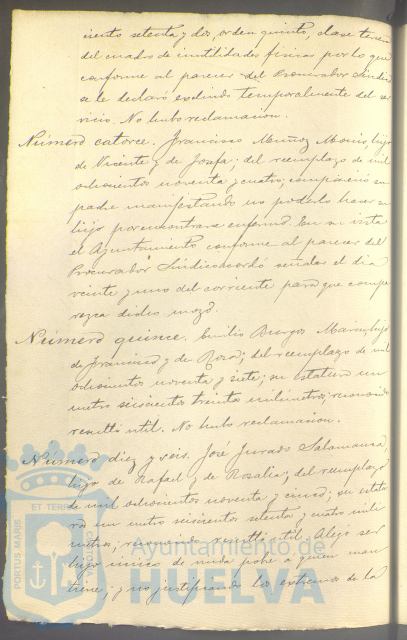 ciento setenta y dos, orden quinto, clase tercera
del cuadro de inutilidades físicas por lo que
conforme al parecer del Procurador Síndico
se le declaró excluido temporalmente del ser
vicio. No hubo reclamacion.
Número catorce. Francisco Muñoz hijo
de Vicente y de Josefa; del reemplazo de mil
ochocientos noventa y cuatro; compareció su
padre manifestando no poderlo hacer su
hijo por encontrarse enfermo. En su vista
el Ayuntamiento conforme al parecer del
Procurador Síndico acordó señalar el dia
veinte y uno del corriente para que compa
rezca dicho mozo.
Número quince. Emilio Burgos Marin, hijo
de Francisco y de Rosa; del reemplazo de mil
ochocientos noventa y siete; su estatura un
metro seiscientos treinta milímetros; reconocido
resultó útil. No hubo reclamacion.
Número diez y seis. José Jurado Salamanca,
hijo de Rafael y de Rosalia; del reemplazo
de mil ochocientos noventa y cinco; su estatu
ra un metro seiscientos setenta y cuatro milí
metros; reconocido resultó útil. Alegó ser
hijo único de viuda pobre a quien man
tiene; y no justificando los extremos de la
PORTUS MARIS ET TERRÆ
Ayuntamiento de
HUELVA